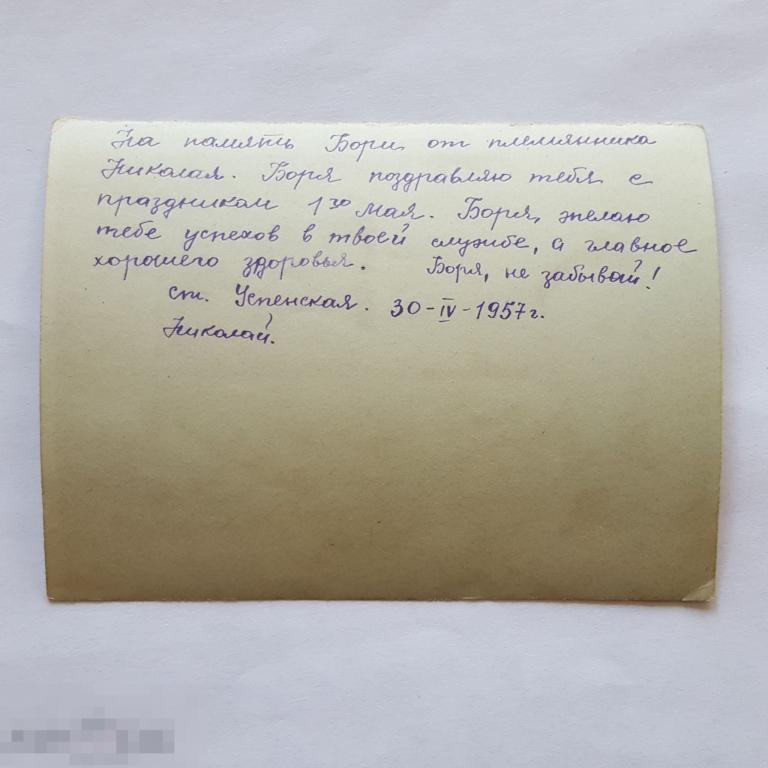 На память Бори от племянника
Николая. Боря поздравляю тебя с
праздником 1го Мая. Боря, желаю
тебе успехов в твоей службе, а главное
хорошего здоровья. Боря, не забывай!
ст. Успенская. 30-IV-1957г.
Николай.